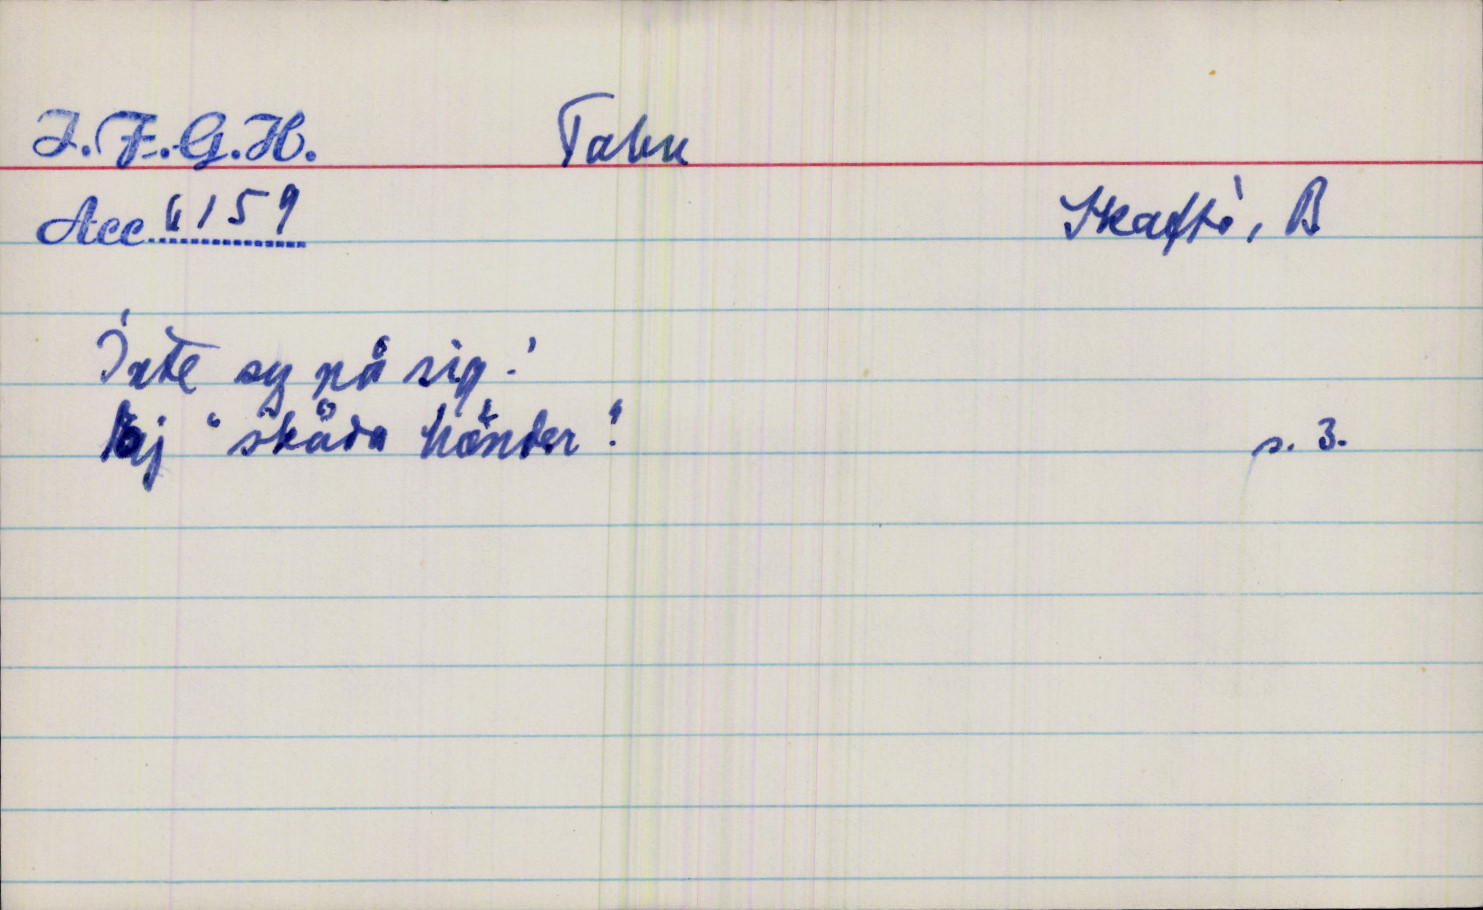 I.F.G.H.
Tabu
Acc 4159
Skaftö, B
Inte sy på sig!
Ej "skåda händer"!
s. 3.